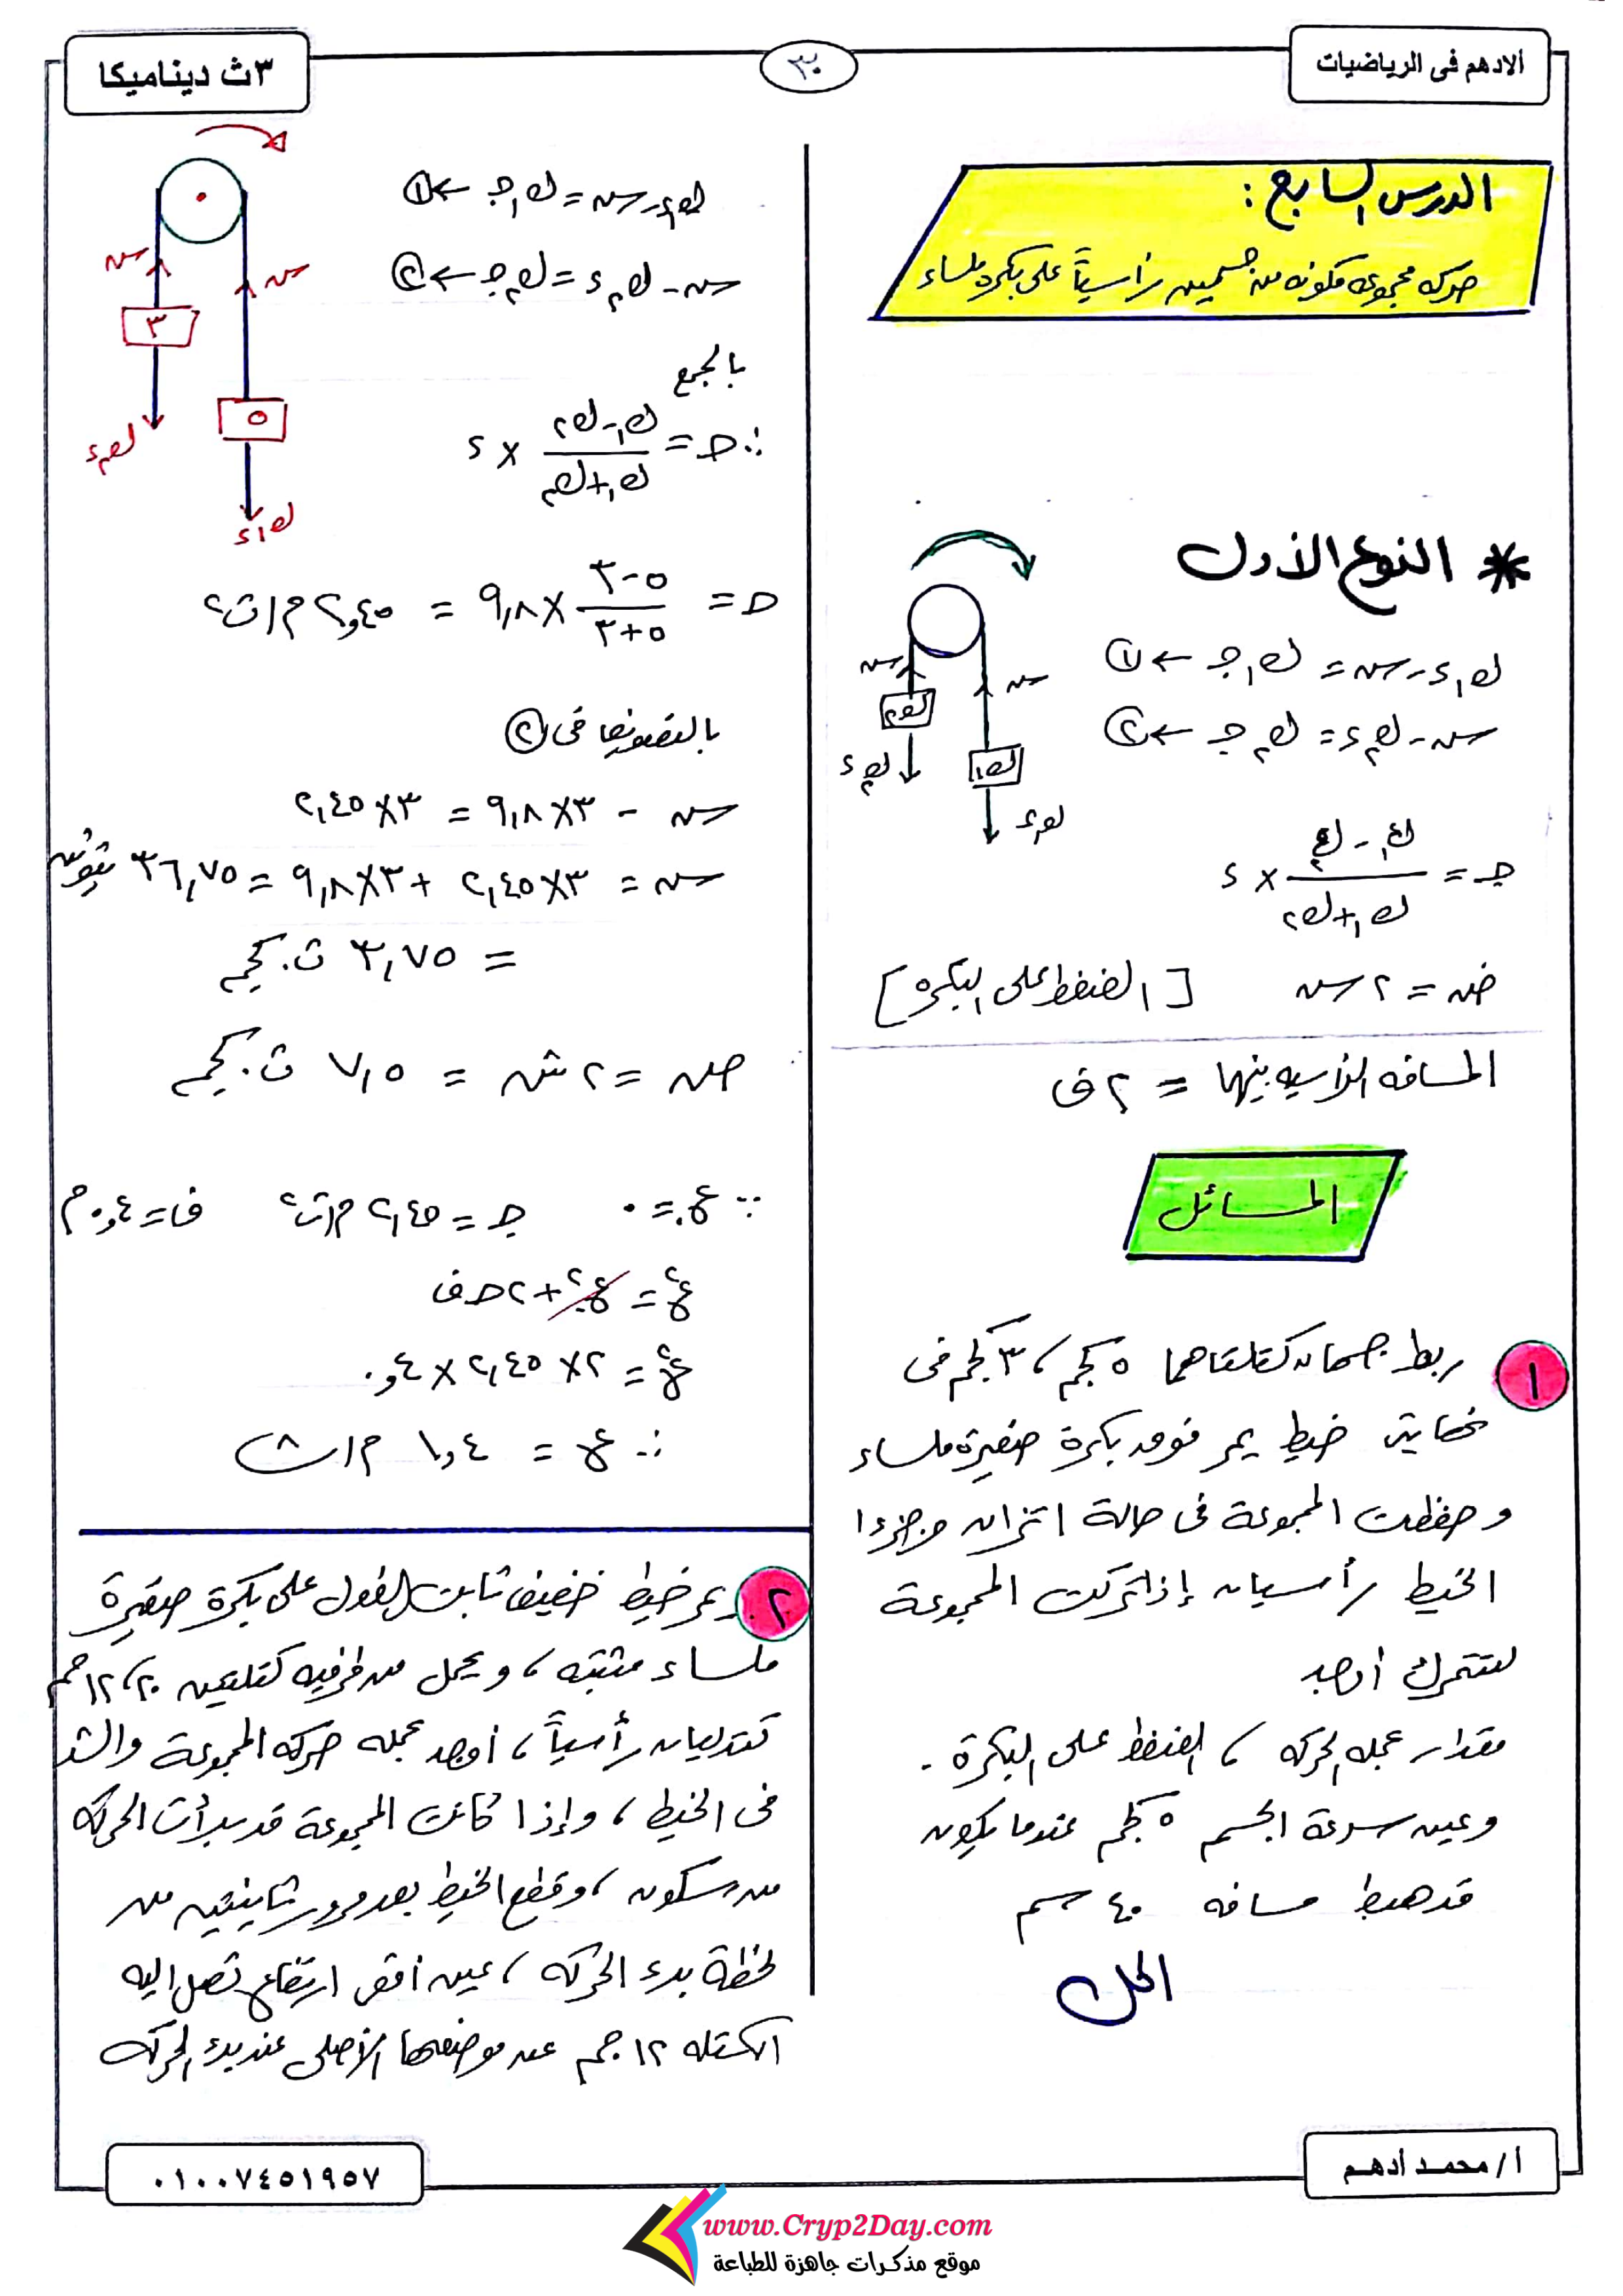 الادهم فى الرياضيات
٣٠
٣ث ديناميكا
الدرس السابع :
حركة مجموعة مكونه من جسمين رأسياً على بكره ملساء
* النوع الأول
ك١ء - س = ك١ جـ ← ①
س - ك٢ء = ك٢ جـ ← ②
س
س
ك٢
ك١
ك٢ء
ك١ء
جـ = (ك١ - ك٢) / (ك١ + ك٢) × ء
ضـ = ٢ س [ الضغط على البكره ]
المسافه الرأسيه بينهما = ٢ ف
المسائل
١ ربط جسمان كتلتاهما ٥ كجم ، ٣ كجم فى
نهايتى خيط يمر فوق بكرة صغيرة ملساء
و حفظت المجموعة فى حالة اتزان وجزءا
الخيط رأسيان إذا تركت المجموعة
لتتحرك أوجد
مقدار عجله الحركه ، الضغط على البكرة .
وعين سرعة الجسم ٥ كجم عندما يكون
قد هبط مسافه ٤٠ سم
الحل
س
س
٣
٥
ك٢ء
ك١ء
ك١ء - س = ك١ جـ ← ①
س - ك٢ء = ك٢ جـ ← ②
بالجمع
∴ جـ = (ك١ - ك٢) / (ك١ + ك٢) × ء
جـ = (٥ - ٣) / (٥ + ٣) × ٩,٨ = ٢,٤٥ م/ث٢
بالتعويض فى ②
س - ٣×٩,٨ = ٣×٢,٤٥
س = ٣×٢,٤٥ + ٣×٩,٨ = ٣٦,٧٥ نيوتن
= ٣,٧٥ ث.كجم
ضـ = ٢ ش = ٧,٥ ث.كجم
∵ ع. = ٠ جـ = ٢,٤٥ م/ث٢ ف = ٠,٤ م
ع٢ = ع.٢ + ٢ جـ ف
ع٢ = ٢ × ٢,٤٥ × ٠,٤
∴ ع = ١,٤ م/ث
٢ يمر خيط خفيف ثابت الطول على بكرة صغيرة
ملساء مثبته ، ويحمل من طرفيه كتلتين ٢٠ ، ١٢ جم
تتدليان رأسياً ، أوجد عجله حركه المجموعة والشد
فى الخيط ، وإذا كانت المجموعة قد بدأت الحركه
من سكون ، وقطع الخيط بعد مرور ثانيتين من
لحظة بدء الحركه ، عين أقصى ارتفاع تصل اليه
الكتله ١٢ جم عن موضعها الأصلى عند بدء الحركه
أ/ محمد أدهم
٠١٠٠٧٤٥١٩٥٧
www.Cryp2Day.com
موقع مذكرات جاهزة للطباعة